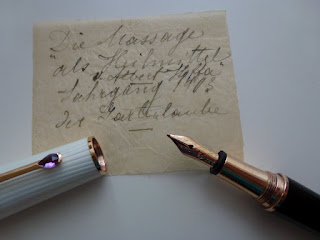 Die Massage
"als Heilmittel"
Jahrgang 1903
der Gartenlaube